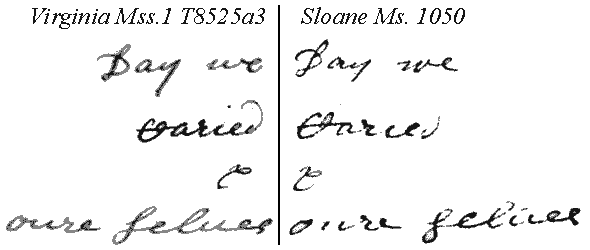 Virginia Mss.1 T8525a3 Sloane Ms. 1050
Day we Day we
varied varied
& &
oure selues oure selues